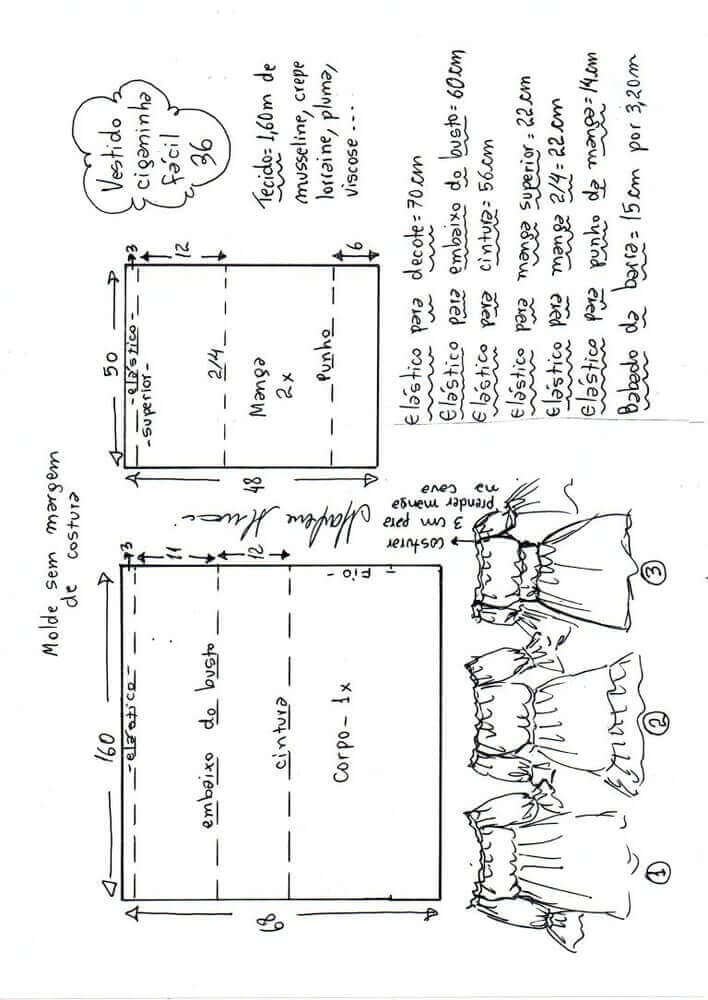 Molde sem margem
de costura
160
-elástico-
3
embaixo do busto
11
cintura
12
Corpo - 1x
Fio
68
50
-elástico-
-superior-
3
12
2/4
Manga
2x
Punho
6
48
Vestido
ciganinha
fácil
36
Tecido = 1,60m de
musseline, crepe
lorraine, pluma,
viscose....
Elástico para decote = 70cm
Elástico para embaixo do busto = 60cm
Elástico para cintura = 56cm
Elástico para manga superior = 22cm
Elástico para manga 2/4 = 22cm
Elástico para punho da manga = 14cm
Babado da barra = 15cm por 3,20m
costurar
3 cm para
prender manga
na cava
1
2
3